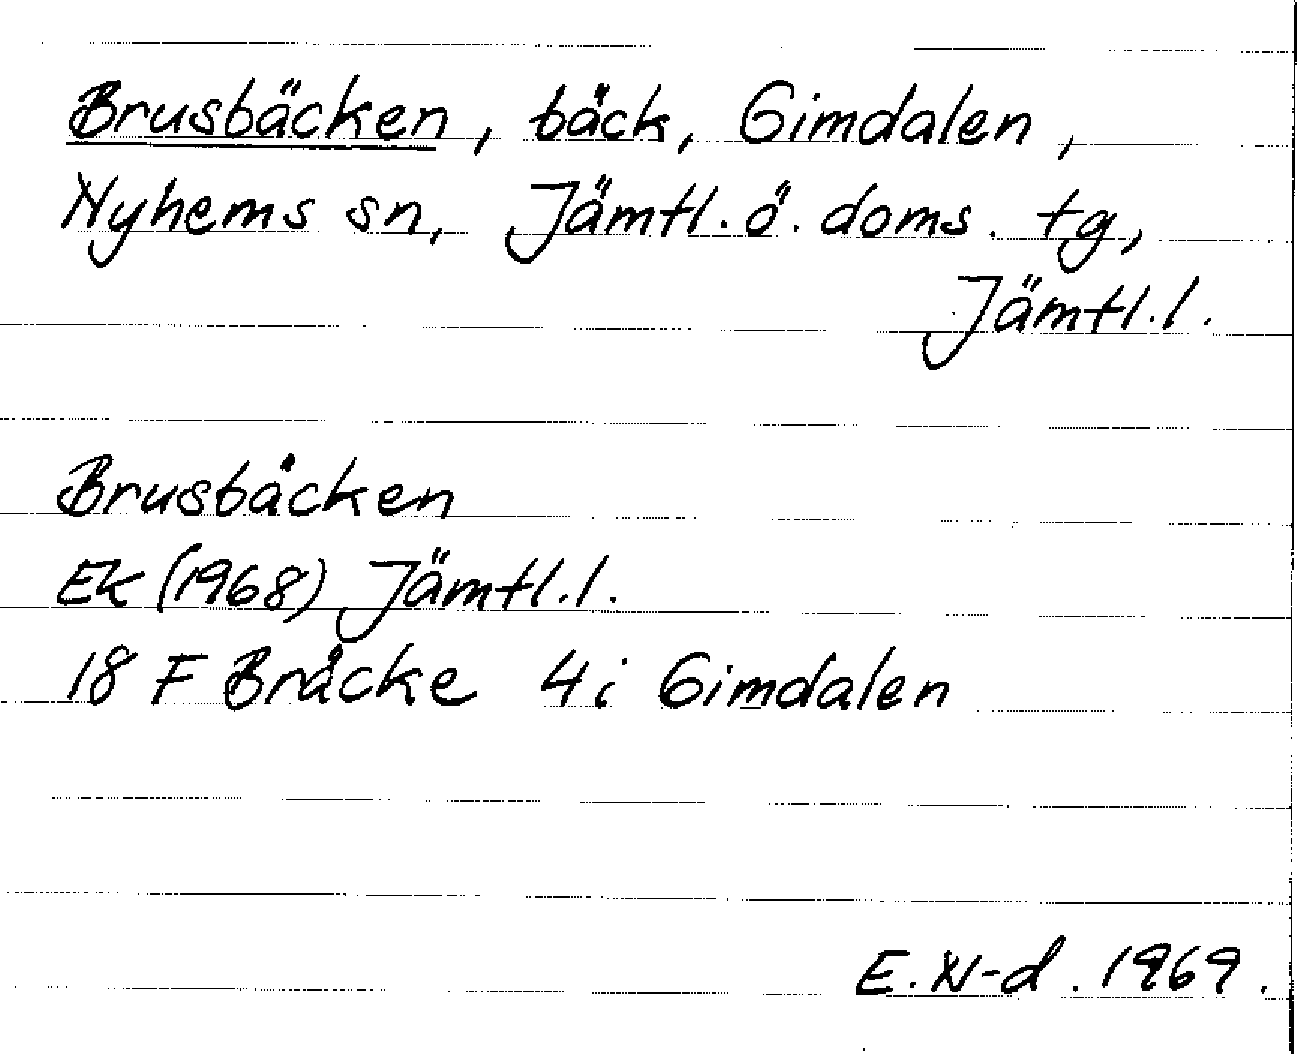 Brusbäcken, bäck, Gimdalen,
Nyhems sn, Jämtl.ö. doms. tg,
Jämtl.l.
Brusbäcken
EK (1968) Jämtl.l.
18 F Bräcke 4 i Gimdalen
E. N-d. 1969.